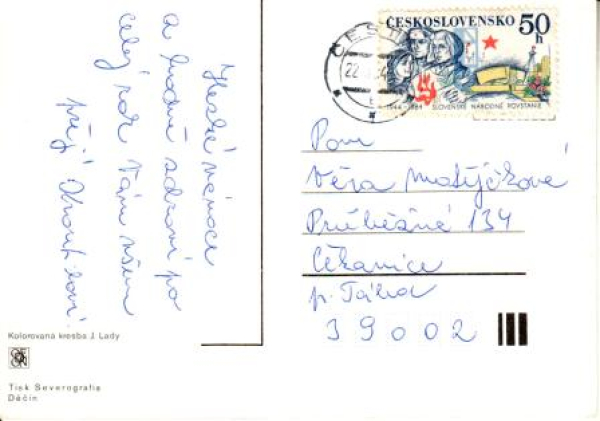 Hezké vánoce
a hodně zdraví po
celý rok Vám všem
přejí Kroupovi.
Kolorovaná kresba J. Lady
Tisk Severografia
Děčín
ČESKOSLOVENSKO 50 h
1944 - 1984 SLOVENSKÉ NÁRODNÉ POVSTANIE
Paní
Věra Matějčková
Průběžné 134
Čekanice
p. Tábor
39002